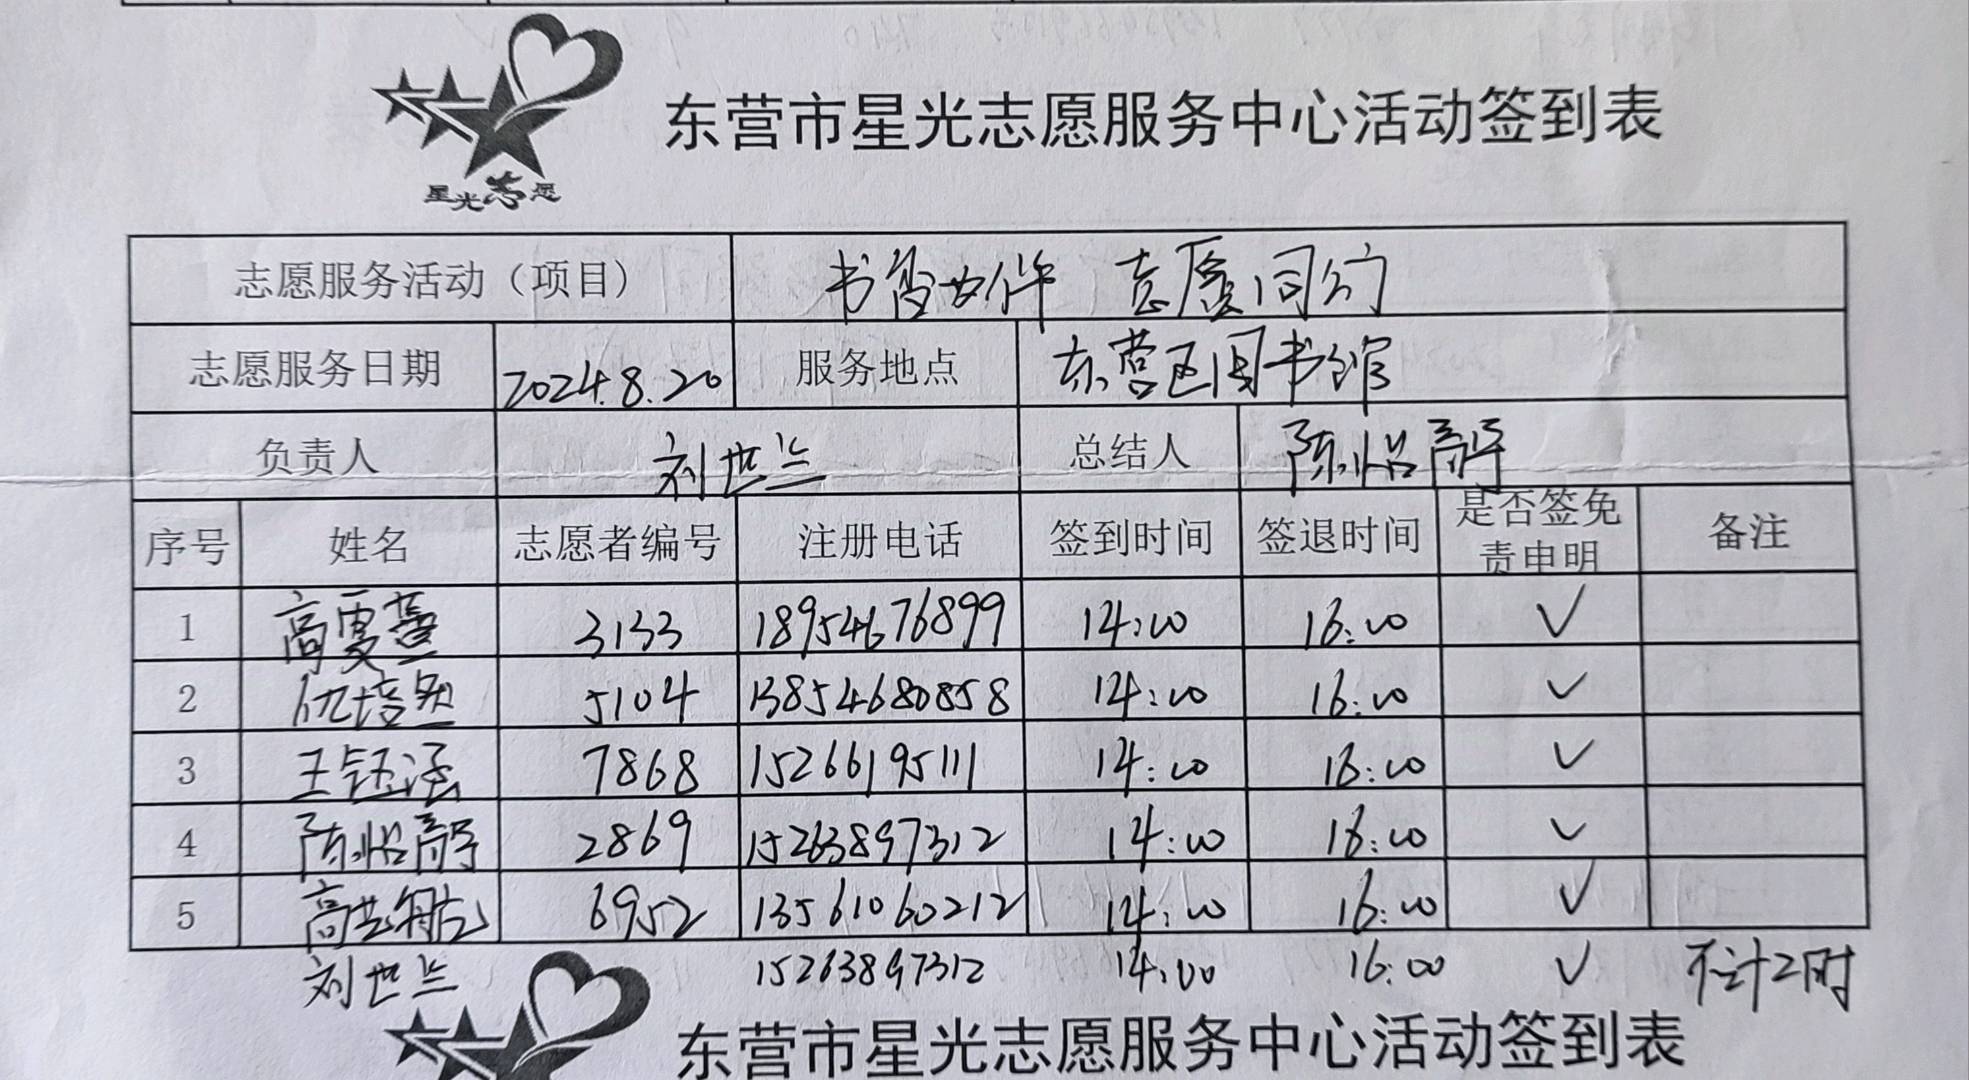 东营市星光志愿服务中心活动签到表
星光志愿
志愿服务活动（项目） 书香女伴 志愿同行
志愿服务日期 2024.8.20 服务地点 东营区图书馆
负责人 刘世兰 总结人 陈怡霏
序号 姓名 志愿者编号 注册电话 签到时间 签退时间 是否签免责申明 备注
1 3133 18954676899 14:00 16:00 ✓
2 5104 13854680858 14:00 16:00 ✓
3 王钰涵 7868 15266195111 14:00 16:00 ✓
4 2869 15263897312 14:00 16:00 ✓
5 6952 13561060212 14:00 16:00 ✓
刘世兰 15263897312 14:00 16:00 ✓ 不计工时
东营市星光志愿服务中心活动签到表